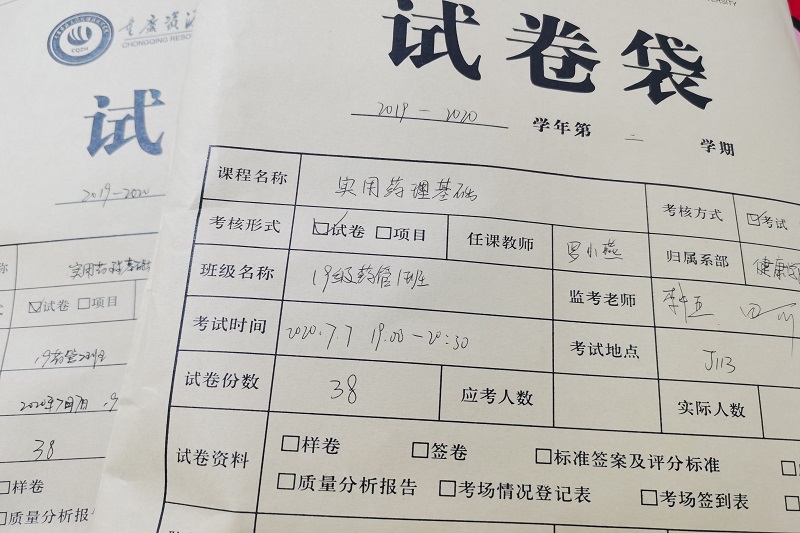 CHONGQING RESO
试
2019-2020
实用药理基础
☑试卷 □项目
38
□样卷
□质量分析报
试卷袋
2019-2020 学年第 二 学期
课程名称 实用药理基础 考核方式 ☑考试
考核形式 ☑试卷 □项目 任课教师 罗小燕 归属系部 健康
班级名称 19级药管1班 监考老师
考试时间 2020.7.7 19:00-20:30 考试地点 J113
试卷份数 38 应考人数 实际人数
试卷资料 □样卷 □签卷 □标准签案及评分标准
□质量分析报告 □考场情况登记表 □考场签到表